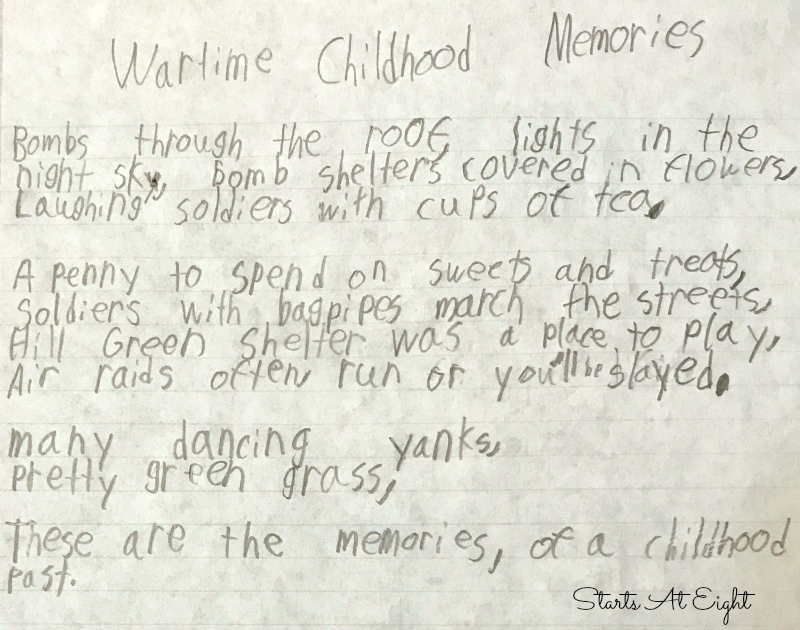 Wartime Childhood Memories
Bombs through the roof, lights in the
night sky, Bomb shelters covered in flowers,
Laughing soldiers with cups of tea.
A penny to spend on sweets and treats,
Soldiers with bagpipes march the streets,
Hill Green Shelter was a place to play,
Air raids often, run or you'll be slayed.
many dancing yanks,
pretty green grass,
These are the memories, of a childhood
past.
Starts At Eight